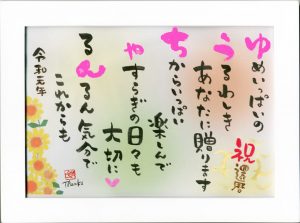 ゆめいっぱいの
うるわしき
あなたに贈ります
ちからいっぱい
楽しんで
やすらぎの日々も
大切に
るんるん気分で
これからも
令和元年
祝
還暦
Thanks